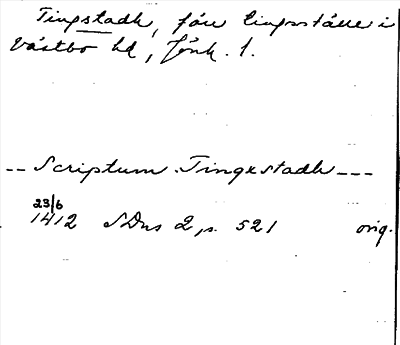 Tingstadh, före tingsställe i
Västbo hd, Jönk. l.
-- Scriptum Tingxstadh ---
23/6
1412 SDns 2, s. 521 orig.